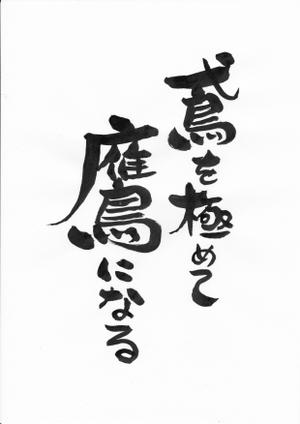 鳶を極めて
鷹になる